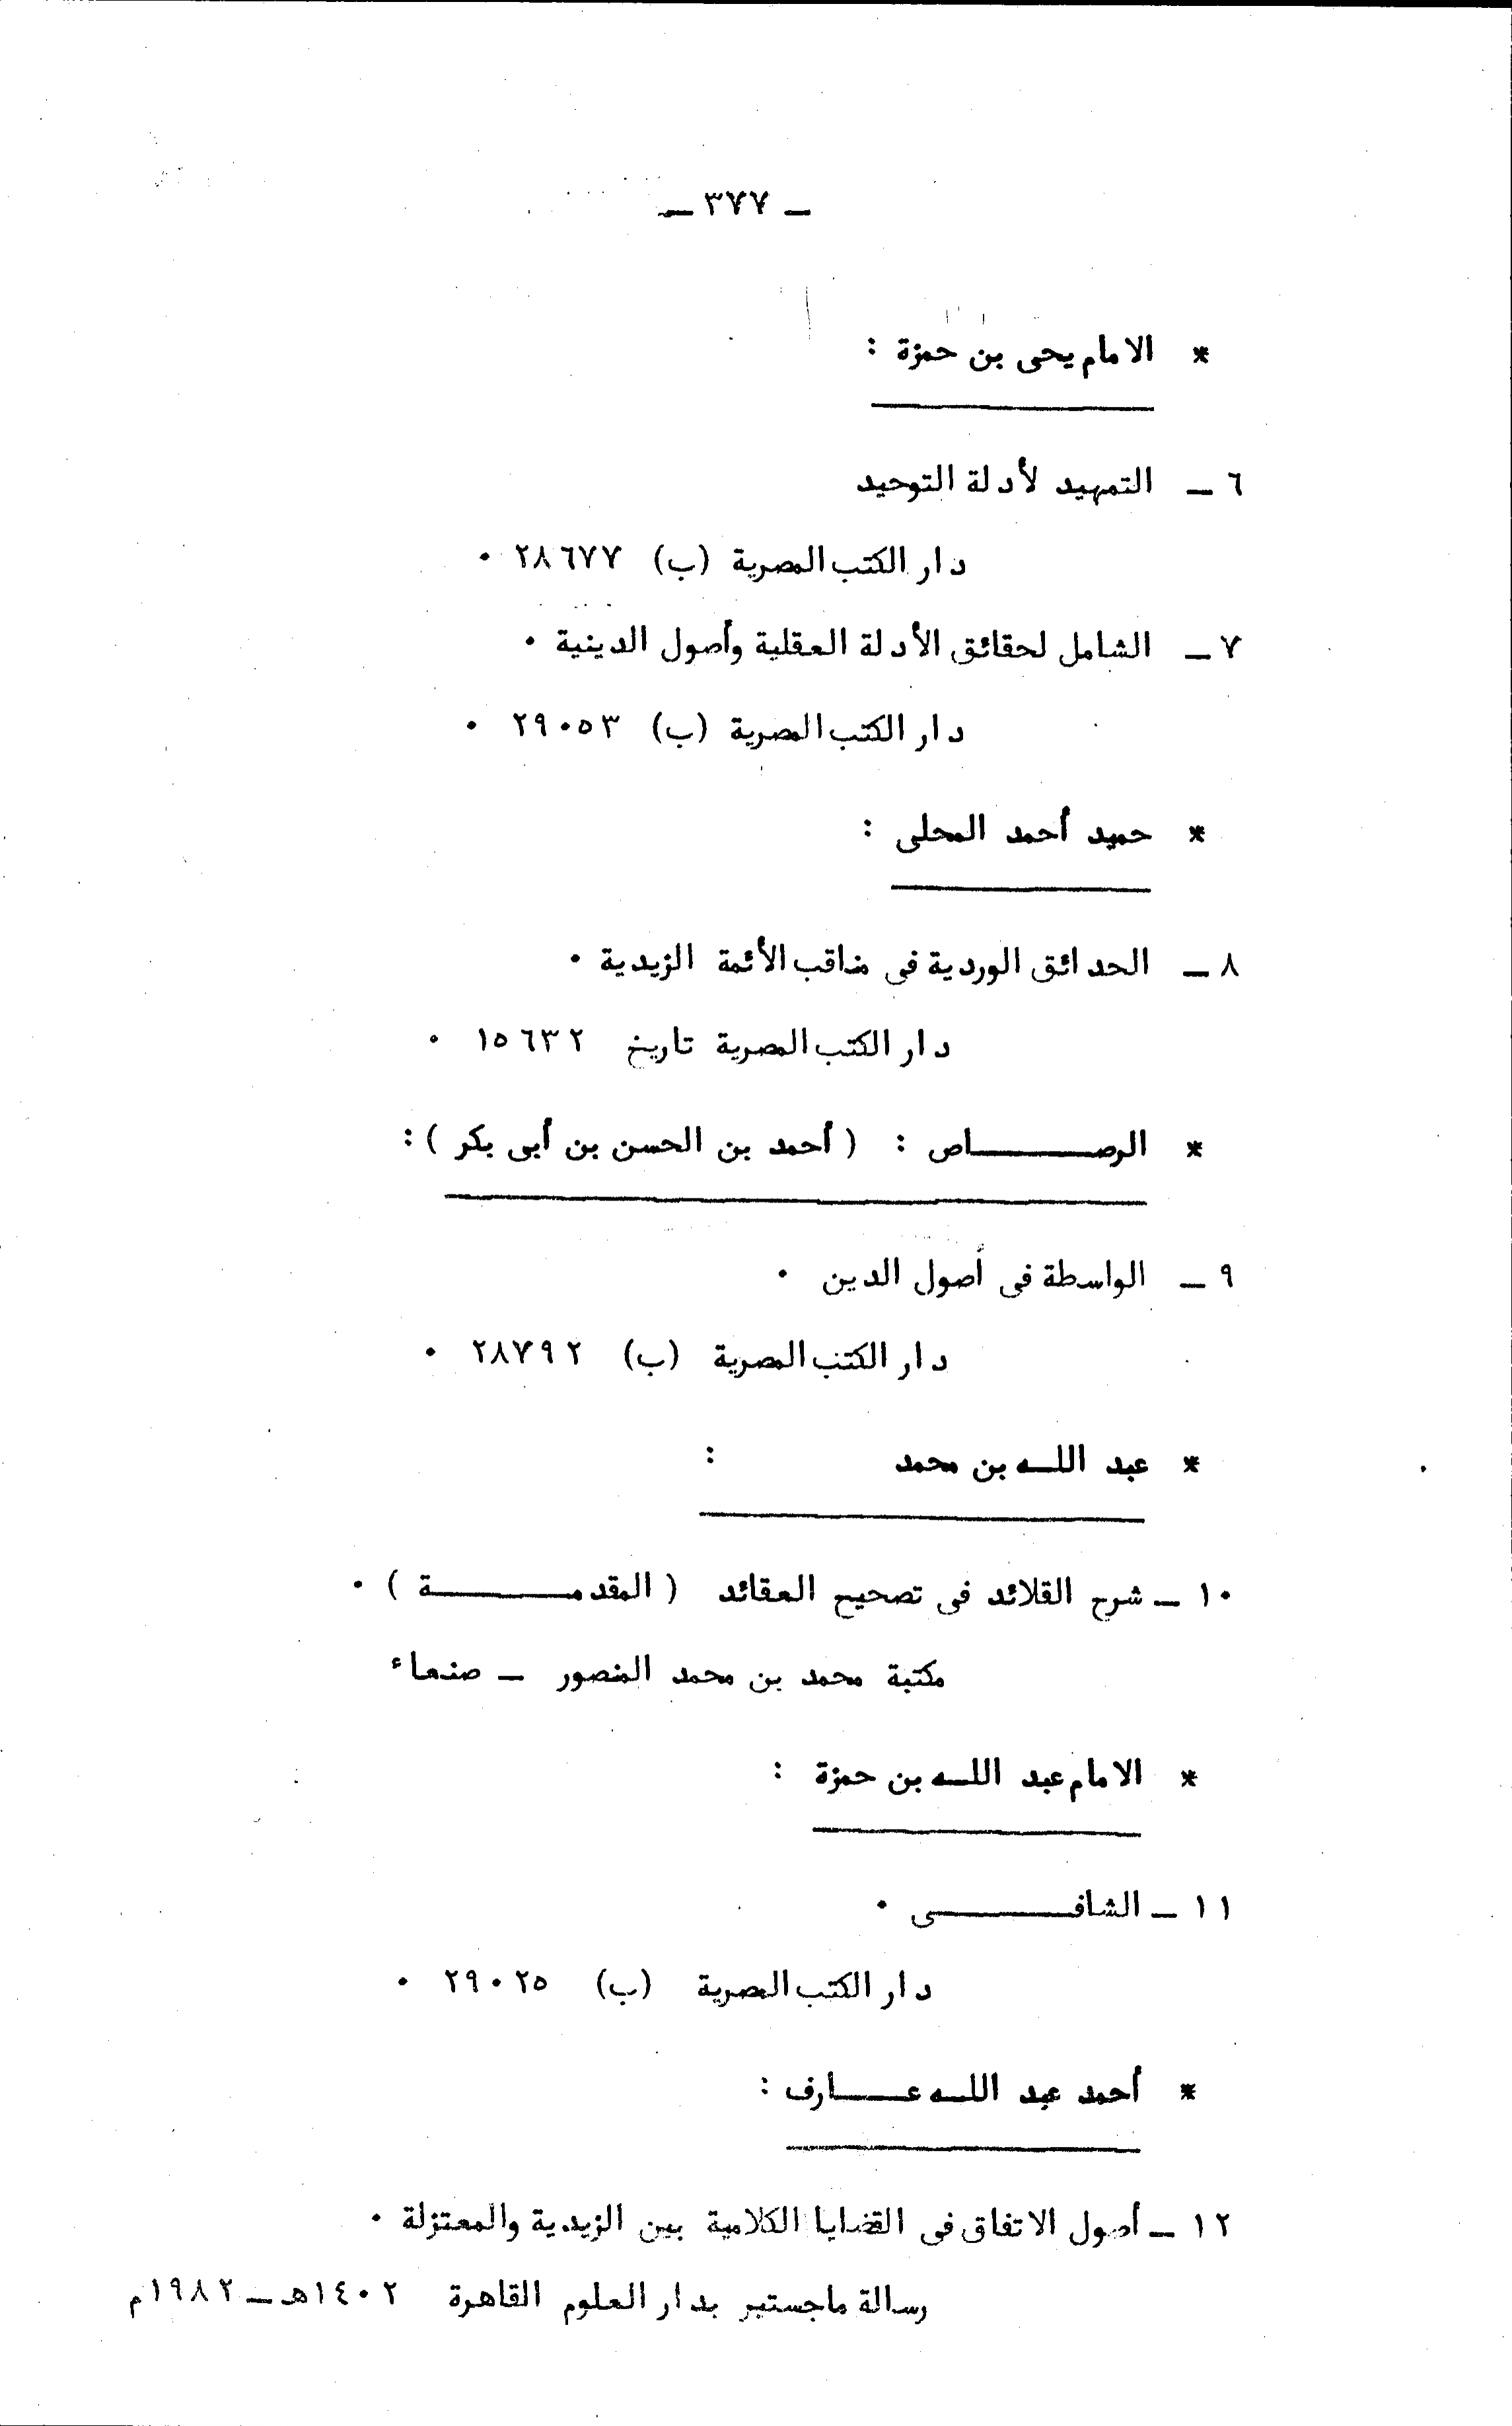 ـ ٣٧٧ ـ
* الامام يحى بن حمزة :
٦ ـ التمهيد لأدلة التوحيد
دار الكتب المصرية (ب) ٢٨٦٧٧ ٠
٧ ـ الشامل لحقائق الأدلة العقلية وأصول الدينية ٠
دار الكتب المصرية (ب) ٢٩٠٥٣ ٠
* حميد أحمد المحلى :
٨ ـ الحدائق الوردية فى مناقب الأئمة الزيدية ٠
دار الكتب المصرية تاريخ ١٥٦٣٢ ٠
* الرصـــــــاص : ( أحمد بن الحسن بن أبى بكر ) :
٩ ـ الواسطة فى أصول الدين ٠
دار الكتب المصرية (ب) ٢٨٧٩٢ ٠
* عبد اللـه بن محمد :
١٠ ـ شرح القلائد فى تصحيح العقائد ( المقدمـــــــة ) ٠
مكتبة محمد بن محمد المنصور ـ صنعاء
* الامام عبد اللـه بن حمزة :
١١ ـ الشافـــــــى ٠
دار الكتب المصرية (ب) ٢٩٠٢٥ ٠
* أحمد عبد اللـه عــــارف :
١٢ ـ أصول الاتفاق فى القضايا الكلامية بين الزيدية والمعتزلة ٠
رسالة ماجستير بدار العلوم القاهرة ١٤٠٢هـ ـ ١٩٨٢م